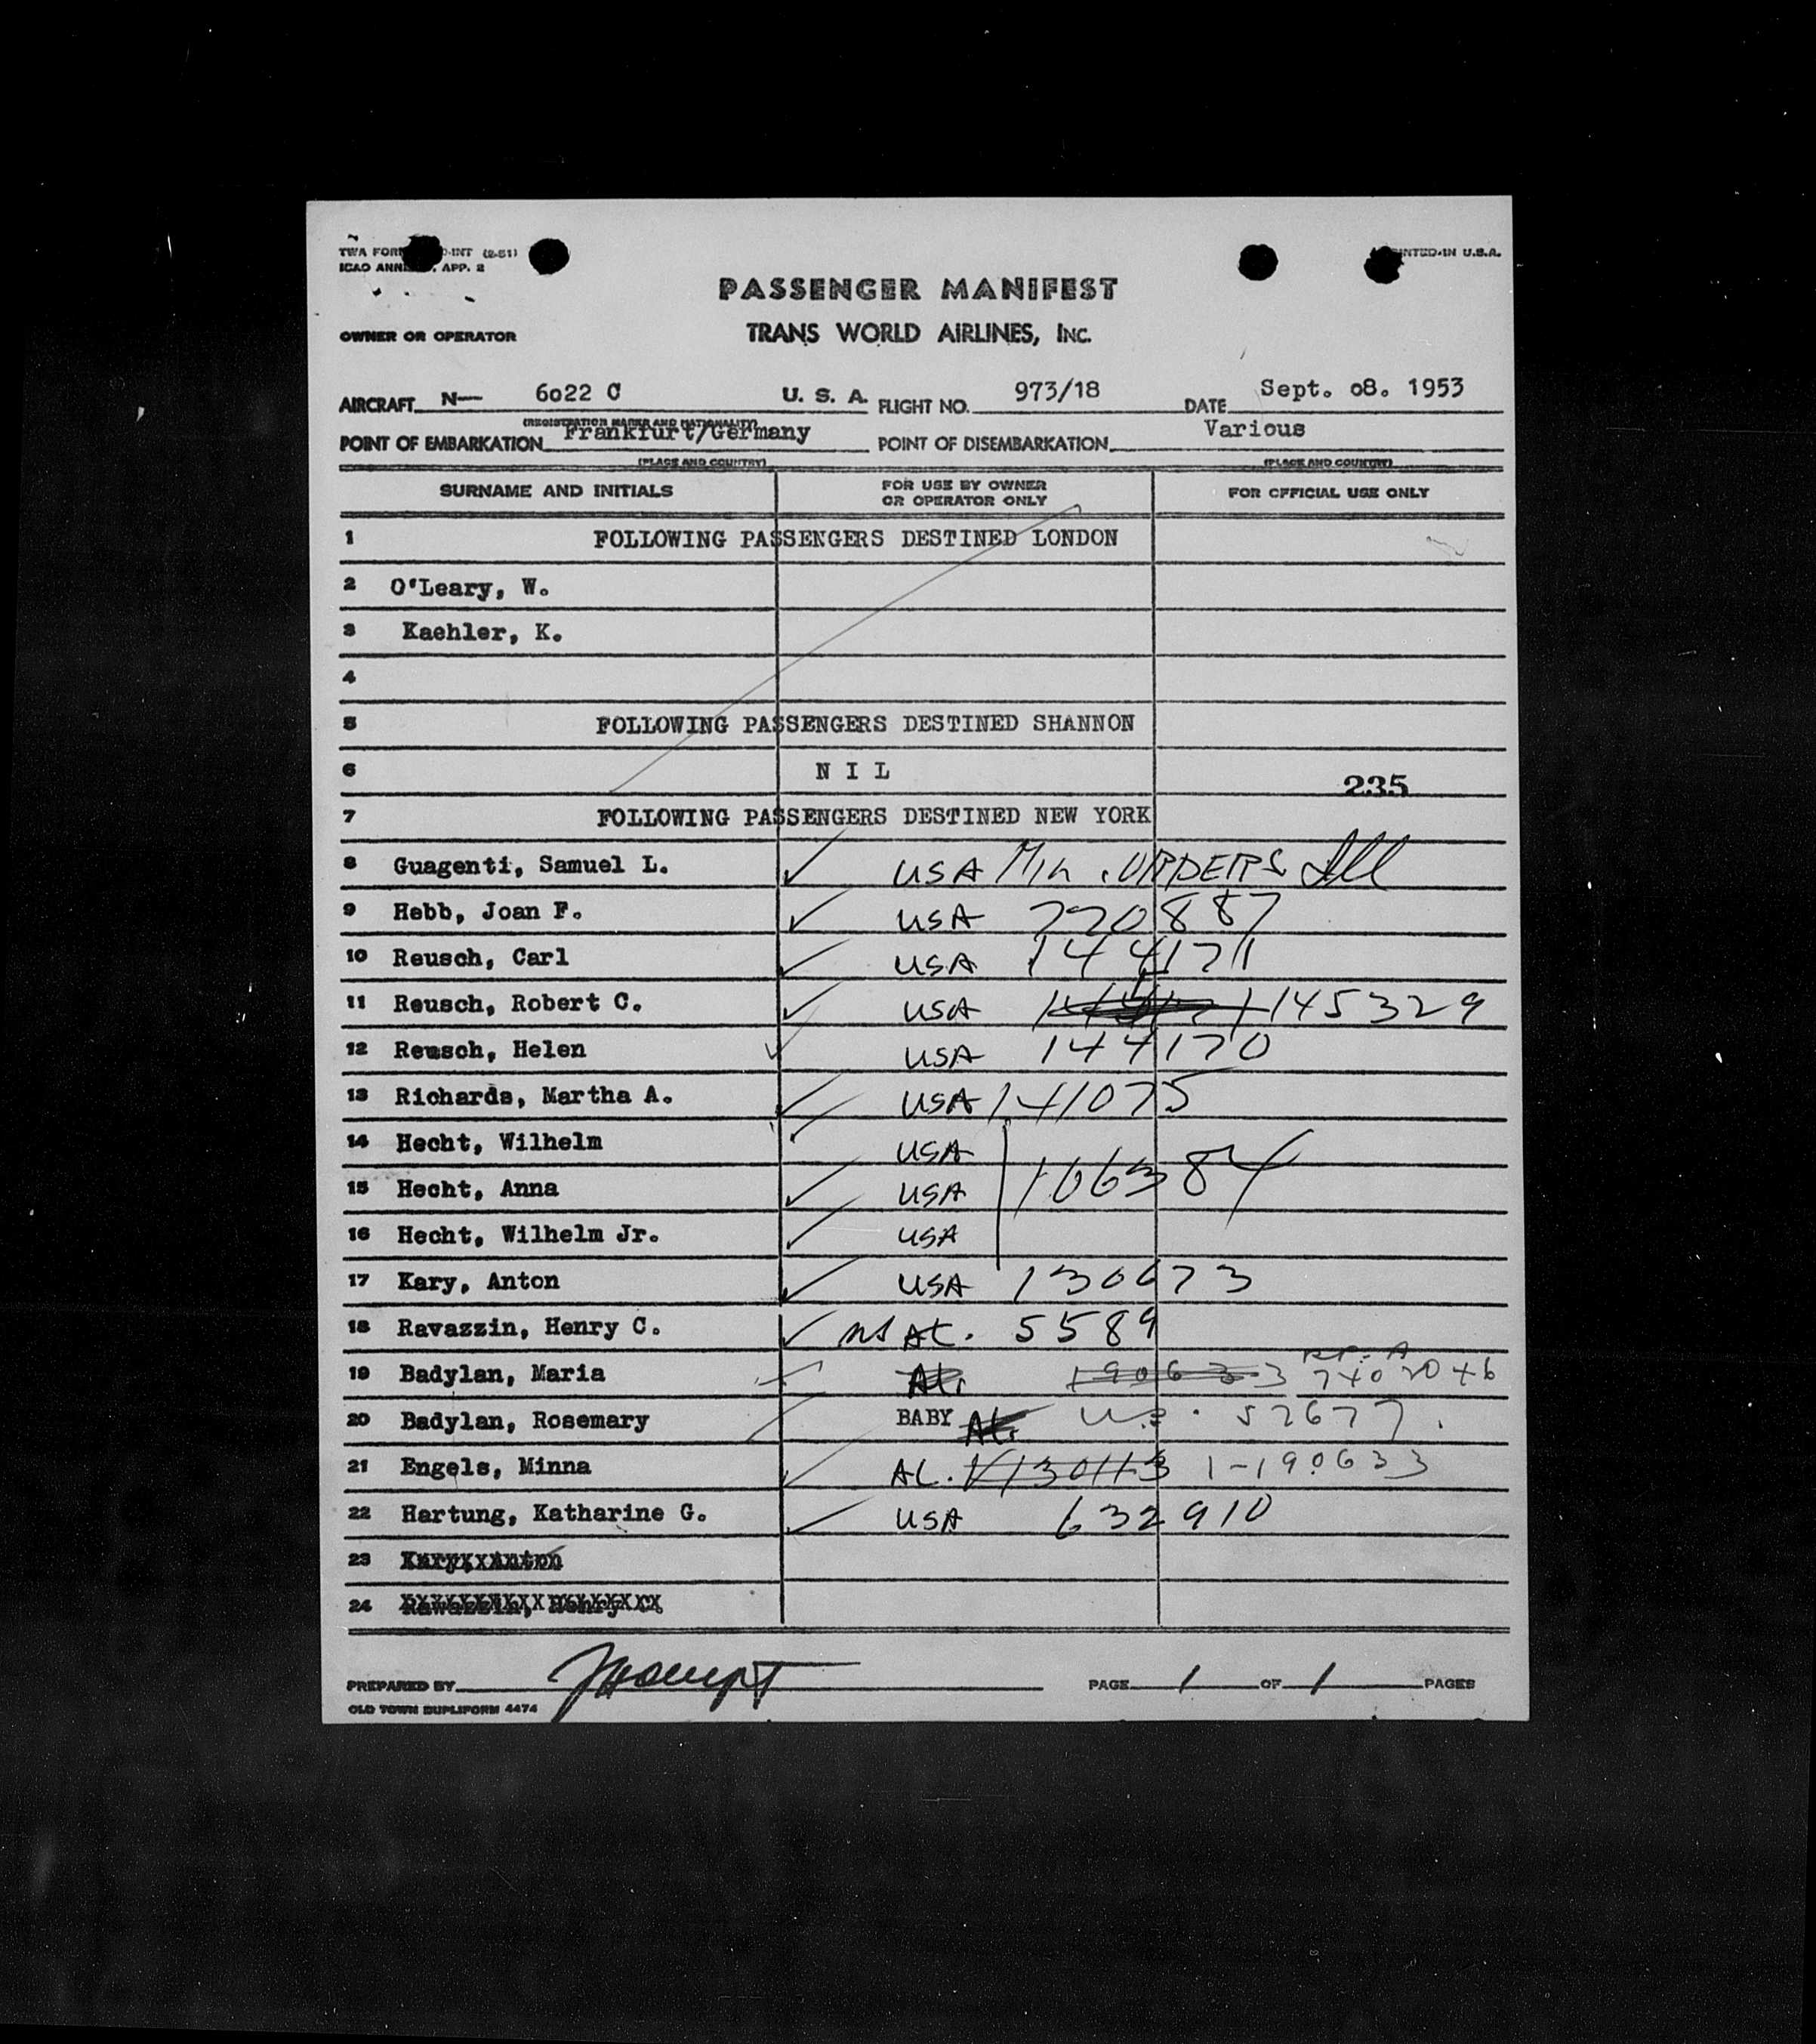 TWA FORM -INT (2-51)
ICAO ANNEX, APP. 2
PRINTED IN U.S.A.
PASSENGER MANIFEST
OWNER OR OPERATOR TRANS WORLD AIRLINES, INC.
AIRCRAFT N— 6022 C U. S. A. FLIGHT NO. 973/18 DATE Sept. 08. 1953
(REGISTRATION MARKS AND NATIONALITY)
POINT OF EMBARKATION Frankfurt/Germany POINT OF DISEMBARKATION Various
(PLACE AND COUNTRY) (PLACE AND COUNTRY)
SURNAME AND INITIALS FOR USE BY OWNER OR OPERATOR ONLY FOR OFFICIAL USE ONLY
1 FOLLOWING PASSENGERS DESTINED LONDON
2 O'Leary, W.
3 Kaehler, K.
4
5 FOLLOWING PASSENGERS DESTINED SHANNON
6 N I L 235
7 FOLLOWING PASSENGERS DESTINED NEW YORK
8 Guagenti, Samuel L. USA ORDERS
9 Hebb, Joan F. USA 770887
10 Reusch, Carl USA 144171
11 Reusch, Robert C. USA 145329
12 Reusch, Helen USA 144170
13 Richards, Martha A. USA 141075
14 Hecht, Wilhelm USA
15 Hecht, Anna USA 106384
16 Hecht, Wilhelm Jr. USA
17 Kary, Anton USA 130673
18 Ravazzin, Henry C. AL. 5589
19 Badylan, Maria AL. 190633
20 Badylan, Rosemary BABY AL. U.S. 52677
21 Engels, Minna AL. 1-190633
22 Hartung, Katharine G. USA 632910
23 Kary, Anton
24 Ravazzin, Henry C.
PREPARED BY PAGE 1 OF 1 PAGES
OLD TOWN DUPLIFORM 4474